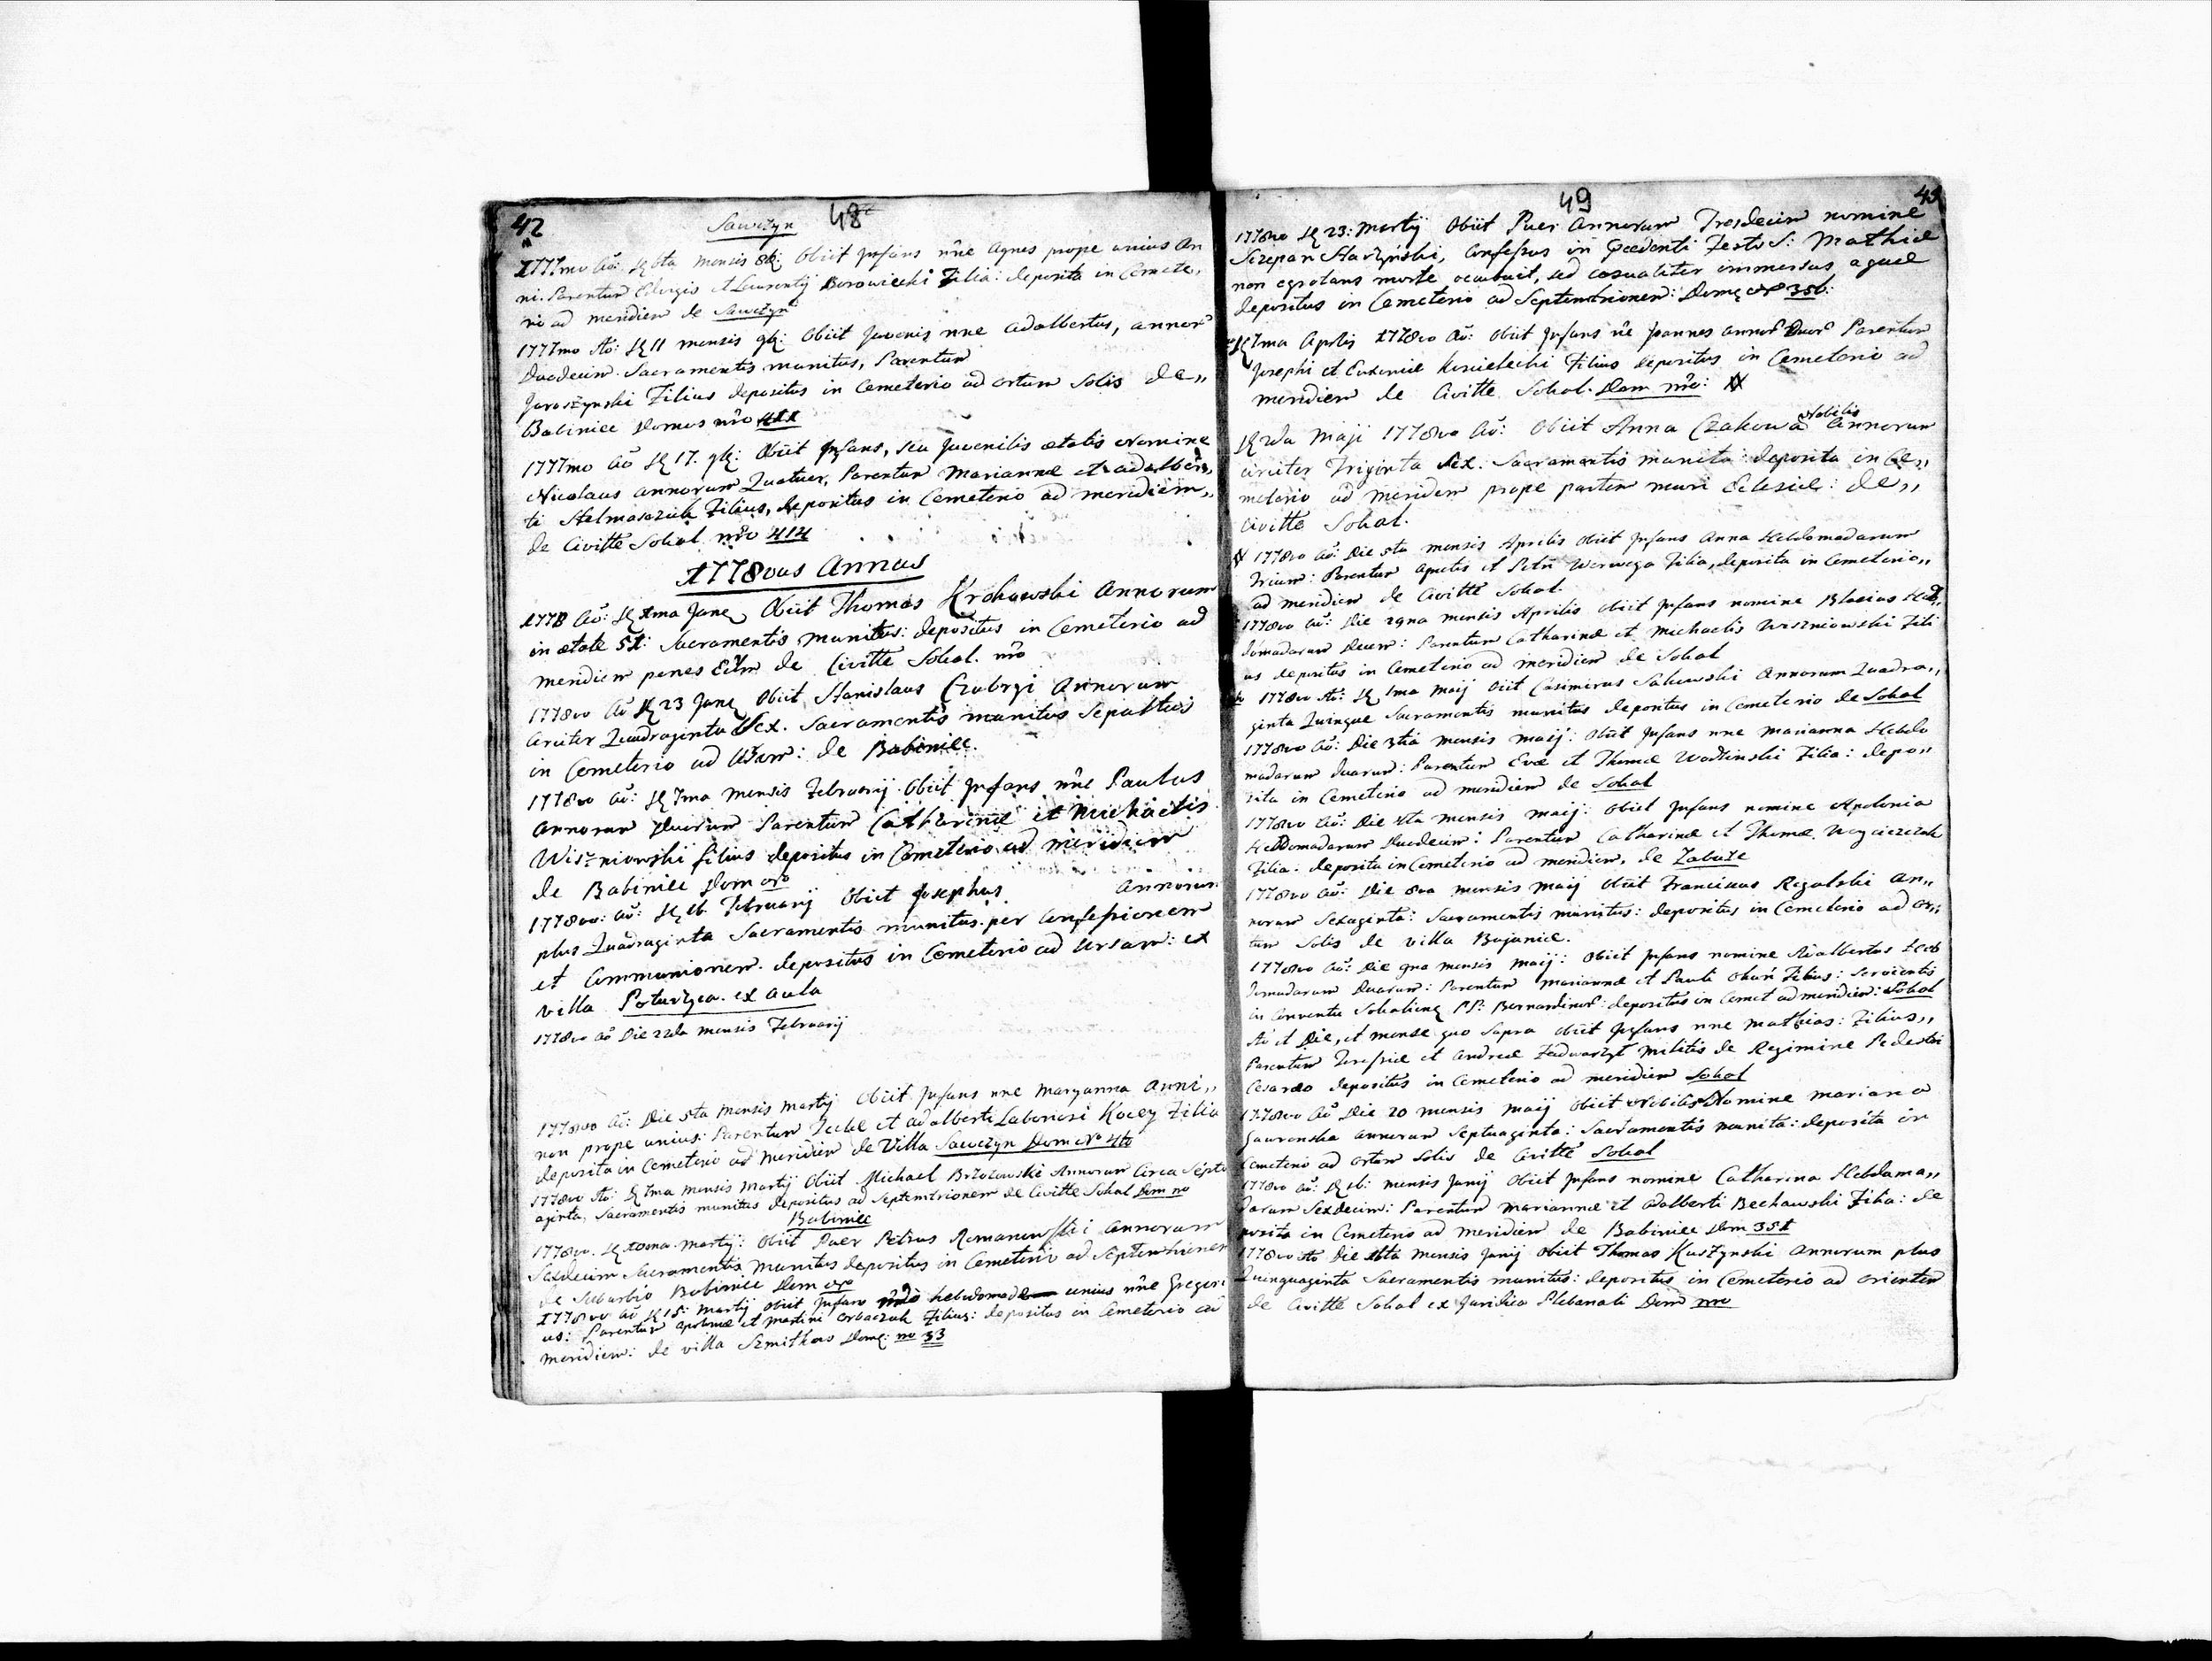 42
Sawczyn 48
1777mo Aõ: 6ta Mensis Obiit Infans nne Agnes prope unius An
ni. Parentum Edvigis et Laurentij Borowiecki Filia: deposita in Cemete,,
rio ad meridiem de Sawczyn
1777mo Aõ: 11 mensis Obiit Juvenis nne Adalbertus, annor
Duodecim. Sacramentis munitus, Parentum
Jaroszynski Filius depositus in Cemeterio ad ortum Solis de,,
Babiniec Domus nro
1777mo Aõ 17. Obiit Infans, seu Juvenilis ætatis Nomine
Nicolaus annorum Quatuor, Parentum Mariannæ et Adalber,,
ti Stelmaszczuk Filius, depositus in Cemeterio ad meridiem,,
de Civitte Sokal nro 414
1778vus Annus
1778 Aõ: Obiit Thomas Krohowski Annorum
in ætate 51: Sacramentis munitus: depositus in Cemeterio ad
meridiem penes de Civitte Sokal. nro
1778vo Aõ 23 Obiit Stanislaus Czubryi Annorum
circiter Quadraginta Sex. Sacramentis munitus Sepultus
in Cemeterio ad Ursam: de Babiniec.
1778vo Aõ: 7ma Mensis Februarij Obiit Infans nne Paulus
Annorum Duorum Parentum Catharinæ et Michaelis
Wiszniowski filius depositus in Cemeterio ad meridiem
de Babiniec Dom nro
1778vo: Aõ: 16 Februarij Obiit Josephus Annorum
plus Quadraginta Sacramentis munitus per Confessionem
et Communionem. depositus in Cemeterio ad Ursam: ex
villa Poturzyca. ex Aula
1778vo Aõ Die 22da Mensis Februarij
1778vo Aõ: Die 5ta Mensis Martij Obiit Infans nne Maryanna Anni,,
non prope unius: Parentum Teclæ et Adalberti Laboriosi Kocey Filia
deposita in Cemeterio ad Meridiem de Villa Sawczyn Dom Nro
1778vo Aõ: 7ma Mensis Martij Obiit Michael Brzozowski Annorum Circa Septu
aginta, Sacramentis munitus depositus ad Septemtrionem de Civitte Sokal Dom no
Babiniec
1778vo. 10ma. Martij: Obiit Puer Petrus Romanowski Annorum
Sexdecim Sacramentis Munitus depositus in Cemeterio ad Septemtrionem
de Suburbio Babiniec Dom nro
1778vo Aõ 15: Martij Obiit Infans hebdomad unius nne Gregori
us: Parentum Apolinæ et Martini Orbaczuk Filius: depositus in Cemeterio ad
meridiem: de villa Szmitkow Dom: no 33
49
1778vo 23: Martij Obiit Puer Annorum Tresdecim nomine
Szczepan Staszynski, Confessus in Præcedenti Festo S: Mathiæ
non egrotans morte occubuit, sed casualiter immersus, aquæ
depositus in Cemeterio ad Septemtrionem: Nro 350:
1ma Aprlis 1778vo Aõ: Obiit Infans ne Joannes annor Duor Parentum
Josephi et Eufemiæ Konielecki Filius depositus in Cemeterio ad
meridiem de Civitte Sokal. Dom nro:
2da Maji 1778vo Aõ: Obiit Anna Czakowa Nobilis Annorum
circiter Triginta Sex. Sacramentis munita: deposita in Ce,,
meterio ad meridiem prope partem muri Eclesiæ: de,,
Civitte Sokal.
1778vo Aõ: Die 5ta mensis Aprilis Obiit Infans Anna Hebdomadarum
Trium: Parentum Agnetis et Petri Werwega Filia, deposita in Cemeterio,,
ad meridiem de Civitte Sokal.
1778vo Aõ: Die 29na mensis Aprilis obiit Infans nomine Blasius Heb,,
domadarum Decem: Parentum Catharinæ et Michaelis Wiszniowski Fili
us depositus in Cemeterio ad meridiem de Sokal
1778vo Aõ: 1ma Maij Oiit Casimirus Sakowski Annorum Quadra,,
ginta Quinque Sacramentis munitus depositus in Cemeterio de Sokal
1778vo Aõ: Die 3tia mensis Maij: Obiit Infans nne Marianna Hebdo
madarum duarum: Parentum Evæ et Thomæ Wodzinski Filia: depo,,
sita in Cemeterio ad meridiem de Sokal
1778vo Aõ: Die mensis Maij: Obiit Infans nomine Apolonia
Hebdomadarum Duodecim: Parentum Catharinæ et Thomæ
Filia. deposita in Cemeterio ad meridiem, de Zabuże
1778vo Aõ: Die 8va mensis Maij Obiit Franciscus Rogalski An,,
norum Sexaginta: Sacramentis munitus: depositus in Cemeterio ad or,,
tum Solis de villa Bojanice.
1778vo Aõ: Die 9na mensis Maij: Obiit Infans nomine Adalbertus Heb
domadarum Duarum: Parentum Mariannæ et Pauli Filius: Servientis
in Conventu PP: Bernardinor: depositus in Cemet ad meridiem: Sokal
Aõ et Die, et mense quo Supra obiit Infans nne Mathias: Filius,,
Parentum Teressiæ et Andreæ Militis de Regimine Pedestri
Cesareo depositus in Cemeterio ad meridiem Sokal
1778vo Aõ Die 20 mensis Maij Obiit Nobilis Nomine Mariana
Gawronska annorum Septuaginta: Sacramentis munita: deposita in
Cemeterio ad ortum Solis de Civitte Sokal
1778vo Aõ: 16: mensis Junij Obiit Infans nomine Catharina Hebdoma,,
darum Sexdecim: Parentum Mariannæ et Adalberti Beckowski Filia: de
posita in Cemeterio ad meridiem de Babiniec Dom 351
1778vo Aõ Die mensis Junij Obiit Thomas Kuszynski Annorum plus
Quinquaginta Sacramentis munitus: depositus in Cemeterio ad orientem
de Civitte Sokal ex Juridica Plebanali Dom nro